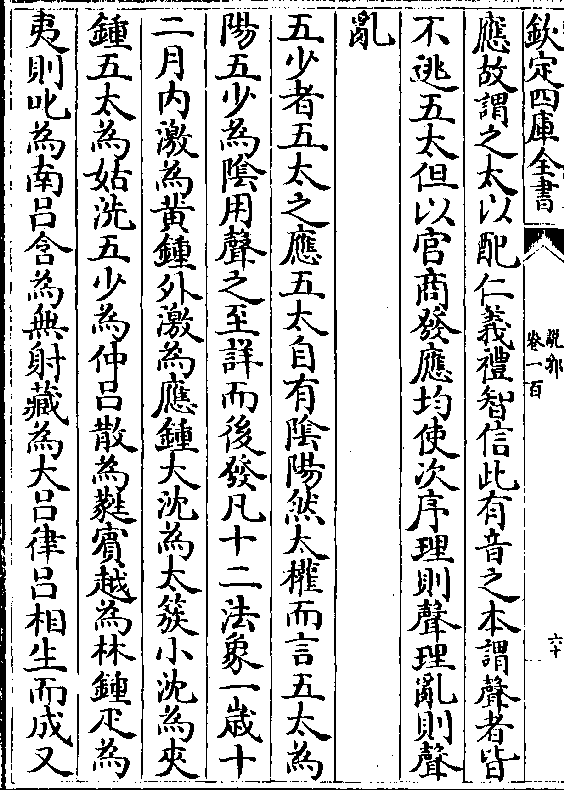 欽定四庫全書
說郛
卷一百
六十
應故謂之太以配仁義禮智信此有音之本謂聲者皆
不逃五太但以宮商發應均使次序理則聲理亂則聲
亂
五少者五太之應五太自有陰陽然太權而言五太為
陽五少為陰用聲之至詳而後發凡十二法象一歲十
二月内激為黃鍾外激為應鍾大沈為太簇小沈為夾
鍾五太為姑洗五少為仲吕散為蕤賓越為林鍾疋為
夷則叱為南吕含為無射藏為大吕律吕相生而成又